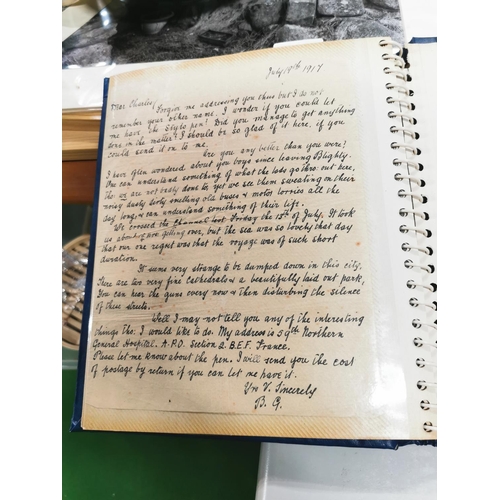 July 19th 1917
Dear Charlie,
Forgive me addressing you thus but I do not
remember your other name. I wonder if you could let
me have the Stylo pen! Did you manage to get anything
done in the matter? I should be so glad of it here, if you
could send it on to me.
Are you any better than you were!
I have often wondered about you boys since leaving Blighty.
One can understand something of what the lads go thro: out here,
tho we are not badly done to, yet we see them sweating on their
noisy dusty dirty smelling old buses & motor lorries all the
day long & can understand something of their life.
We crossed the Channel last Friday the 13th of July. It took
us about getting over, but the sea was so lovely that day
that our one regret was that the voyage was of such short
duration.
It seems very strange to be dumped down in this city,
There are two very fine cathedrals & a beautifully laid out park,
You can hear the guns every now & then disturbing the silence
of these streets.
Well I may not tell you any of the interesting
things tho. I would like to do. My address is 59th Northern
General Hospital. A.P.O. Section 2. B.E.F. France.
Please let me know about the pen. I will send you the cost
of postage by return if you can let me have it.
Yrs V. Sincerely
B. G.